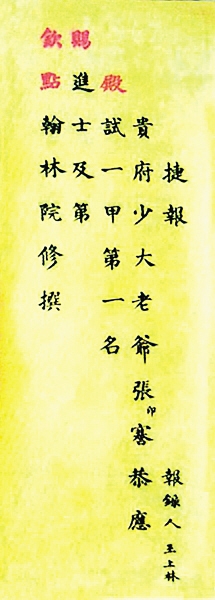 捷報 報錄人 王上林
貴府少大老爺張印謇恭應
殿試一甲第一名
賜進士及第
欽點翰林院修撰